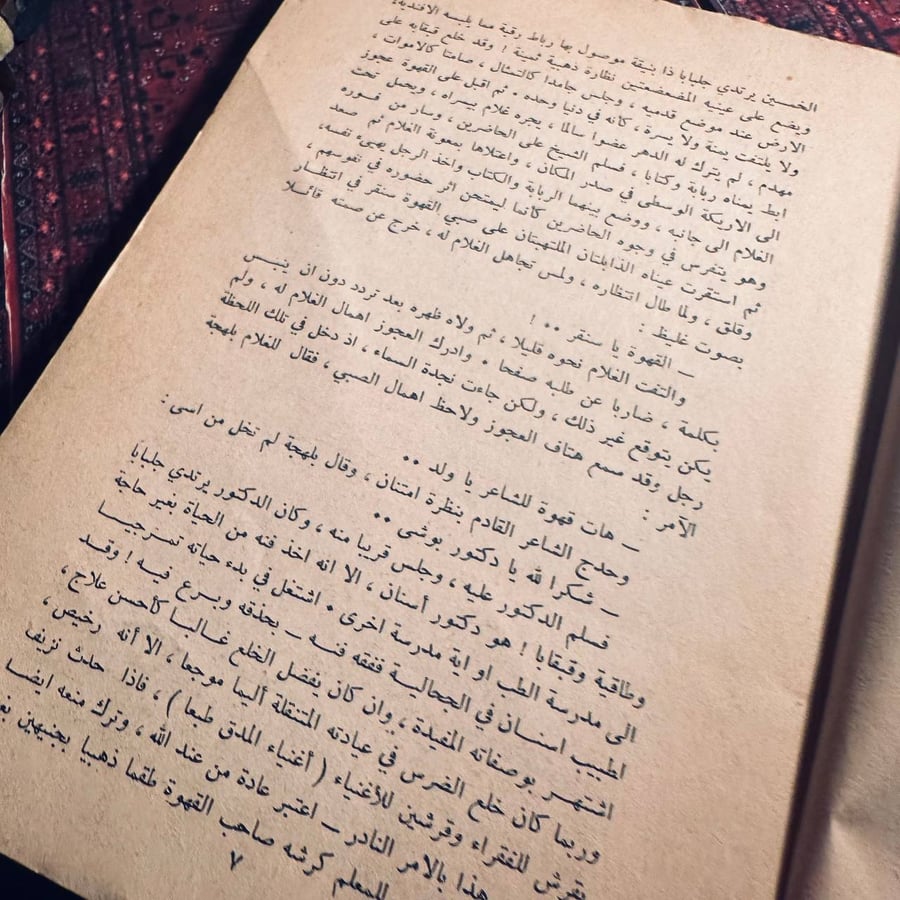 الخمسين يرتدي جلبابا ذا بنيقة موصول بها رباط رقبة مما يلبسه الافندية،
ويضع على عينيه المضعضعتين نظارة ذهبية ثمينة ! وقد خلع قبقابه على
الارض عند موضع قدميه ، وجلس جامدا كالتمثال ، صامتا كالاموات ،
ولا يلتفت يمنة ولا يسرة ، كأنه في دنيا وحده . ثم اقبل على القهوة عجوز
مهدم ، لم يترك له الدهر عضوا سالما ، يجره غلام بيسراه ، ويحمل تحت
ابط يمناه ربابة وكتابا ، فسلم الشيخ على الحاضرين ، وسار من فوره
الى الاريكة الوسطى في صدر المكان ، واعتلاها بمعونة الغلام ثم صعد
الغلام الى جانبه ، ووضع بينهما الربابة والكتاب واخذ الرجل يهيىء نفسه،
وهو يتفرس في وجوه الحاضرين كأنما ليمتحن اثر حضوره في نفوسهم ،
ثم استقرت عيناه الذابلتان الملتهبتان على صبي القهوة سنقر في انتظار
وقلق ، ولما طال انتظاره ، ولمس تجاهل الغلام له ، خرج عن صمته قائلا
بصوت غليظ :
ــ القهوة يا سنقر . . !
والتفت الغلام نحوه قليلا ، ثم ولاه ظهره بعد تردد دون ان ينبس
بكلمة ، ضاربا عن طلبه صفحا . وادرك العجوز اهمال الغلام له ، ولم
يكن يتوقع غير ذلك ، ولكن جاءت نجدة السماء ، اذ دخل في تلك اللحظة
رجل وقد سمع هتاف العجوز ولاحظ اهمال الصبي ، فقال للغلام بلهجة
الآمر :
ــ هات قهوة للشاعر يا ولد . .
وحدج الشاعر القادم بنظرة امتنان ، وقال بلهجة لم تخل من اسى :
ــ شكرا لله يا دكتور بوشى . .
فسلم الدكتور عليه ، وجلس قريبا منه ، وكان الدكتور يرتدي جلبابا
وطاقية وقبقابا ! هو دكتور أسنان ، الا انه اخذ فنه من الحياة بغير حاجة
الى مدرسة الطب او اية مدرسة اخرى . اشتغل في بدء حياته تمرجيا
لطبيب اسنان في الجمالية ففقه فنه ــ بحذقه وبرع فيه ! وقد
اشتهر بوصفاته المفيدة ، وان كان يفضل الخلع غالبا كأحسن علاج ،
وربما كان خلع الضرس في عيادته المتنقلة أليما موجعا ، الا أنه رخيص ،
بقرش للفقراء وقرشين للأغنياء ( أغنياء المدق طبعا ) ، فاذا حدث نزيف
هذا بالامر النادر ــ اعتبر عادة من عند الله ، وترك منعه ايضا
للمعلم كرشه صاحب القهوة طقما ذهبيا بجنيهين
٧